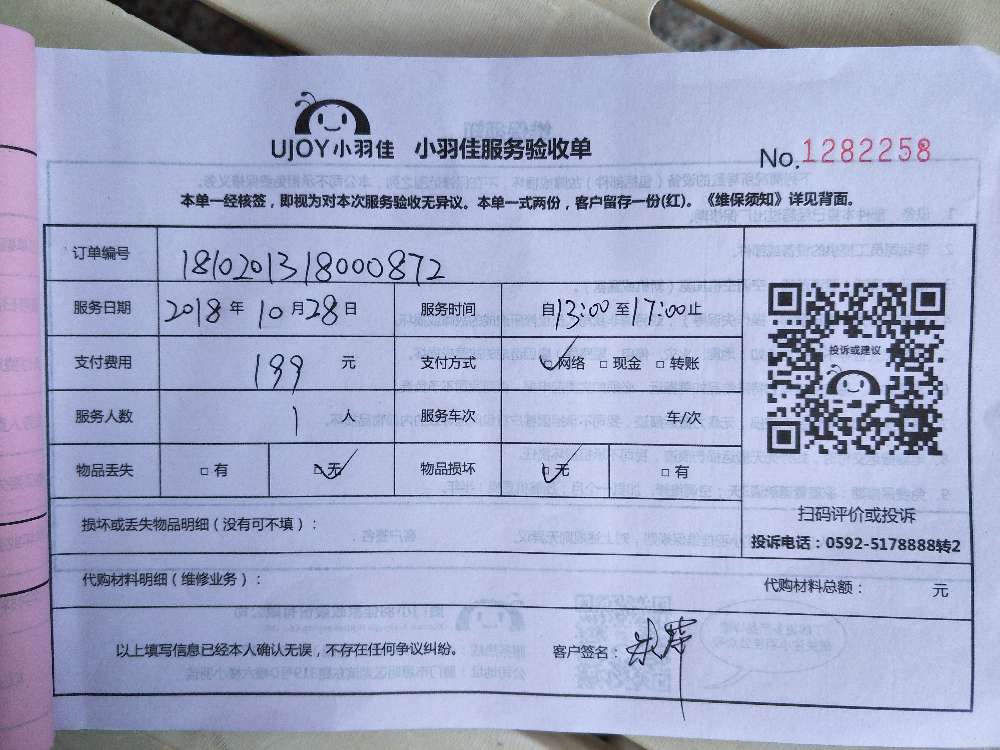 UJOY小羽佳 小羽佳服务验收单 No.1282258
本单一经核签，即视为对本次服务验收无异议。本单一式两份，客户留存一份(红)。《维保须知》详见背面。
订单编号 181020131800​0872
服务日期 2018年10月28日 服务时间 自13:00至17:00止
支付费用 199 元 支付方式 ☑网络 □现金 □转账
投诉或建议
服务人数 1 人 服务车次 车/次
物品丢失 □有 ☑无 物品损坏 ☑无 □有
扫码评价或投诉
损坏或丢失物品明细（没有可不填）：
投诉电话：0592-5178888转2
代购材料明细（维修业务）： 代购材料总额： 元
以上填写信息已经本人确认无误，不存在任何争议纠纷。 客户签名：